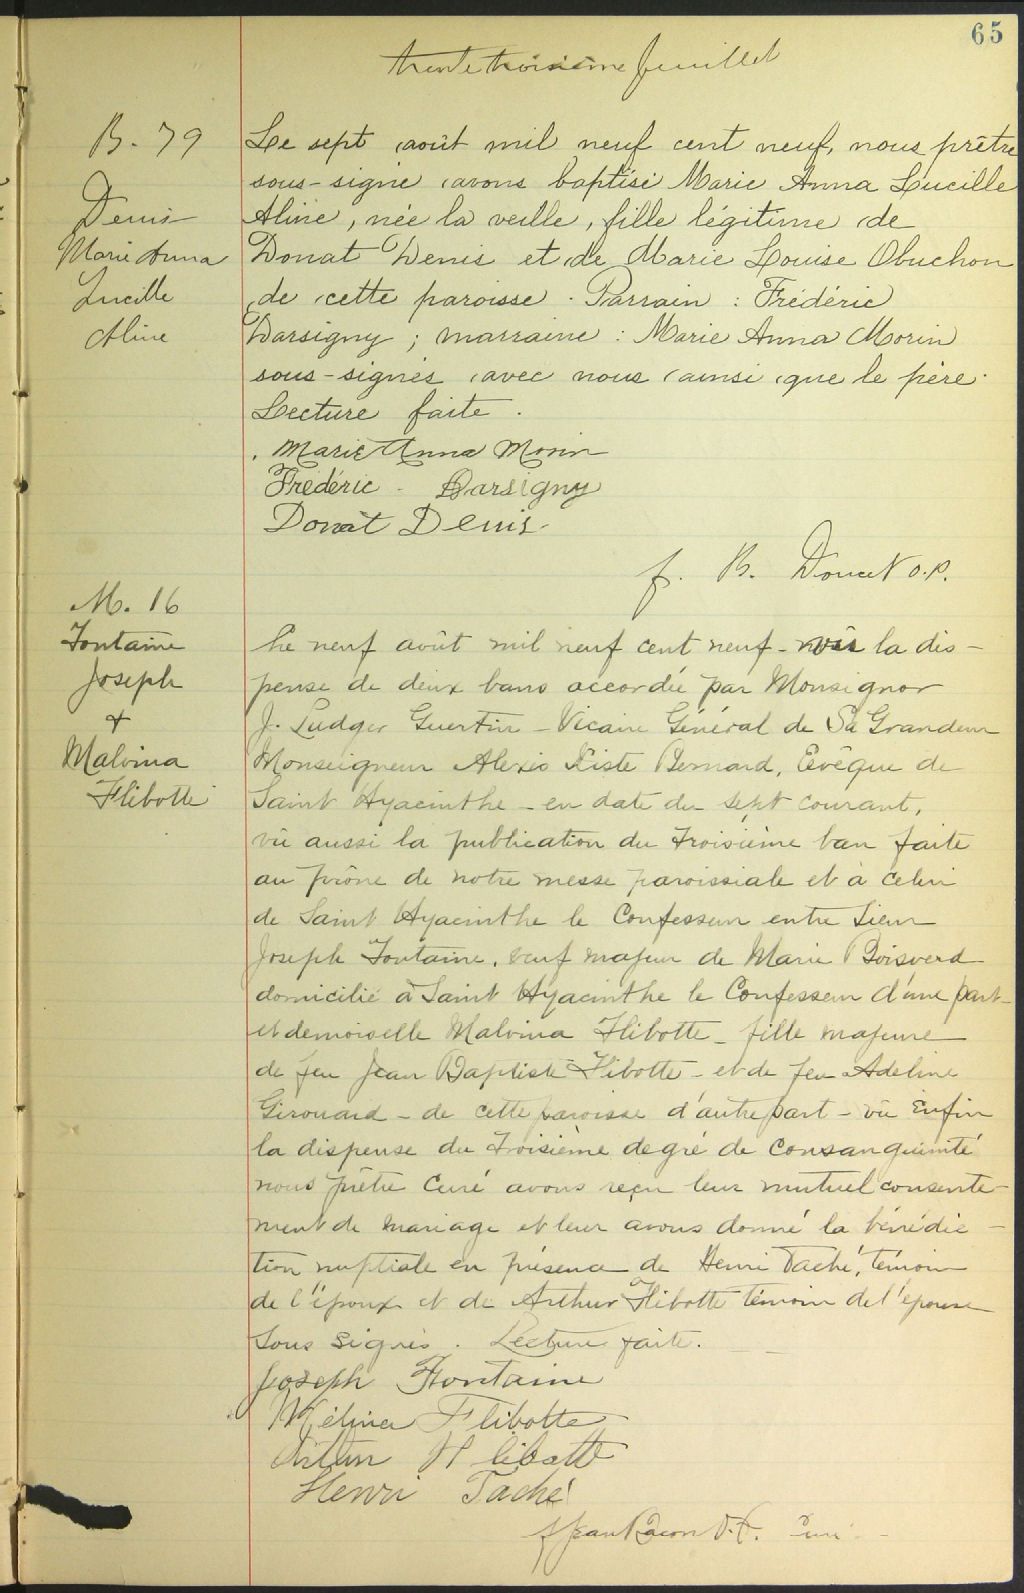 65
trente troisième feuillet
B. 79
Denis
Marie Anna
Lucille
Aline
Le sept août mil neuf cent neuf, nous prêtre
sous-signé avons baptisé Marie Anna Lucille
Aline, née la veille, fille légitime de
Donat Denis et de Marie Louise Obuchon
de cette paroisse. Parrain : Frédéric
Darsigny ; marraine : Marie Anna Morin
sous-signés avec nous ainsi que le père.
Lecture faite.
Marie Anna Morin
Frédéric Darsigny
Donat Denis
f. B. Doucet o.p.
M. 16
Fontaine
Joseph
+
Malvina
Flibotte
Le neuf août mil neuf cent neuf - vu la dis-
pense de deux bans accordée par Monsignor
J. Ludger Guertin - Vicaire Général de Sa Grandeur
Monseigneur Alexis Xiste Bernard, Evêque de
Saint Hyacinthe - en date du sept courant,
vû aussi la publication du troisième ban faite
au prône de notre messe paroissiale et à celui
de Saint Hyacinthe le Confesseur entre Sieur
Joseph Fontaine, veuf majeur de Marie Boisverd
domicilié à Saint Hyacinthe le Confesseur d'une part
et demoiselle Malvina Flibotte - fille majeure
de feu Jean Baptiste Flibotte - et de feu Adeline
Girouard - de cette paroisse d'autre part - vû Enfin
la dispense du troisième degré de Consanguinité
nous prêtre Curé avons reçu leur mutuel consente-
ment de mariage et leur avons donné la bénédic-
tion nuptiale en présence de Henri Taché, témoin
de l'époux et de Arthur Flibotte témoin de l'épouse
Sous signés. Lecture faite.
Joseph Fontaine
Mélina Flibotte
Artur Flibotte
Henri Taché
f Jean Bacon O.P. Curé